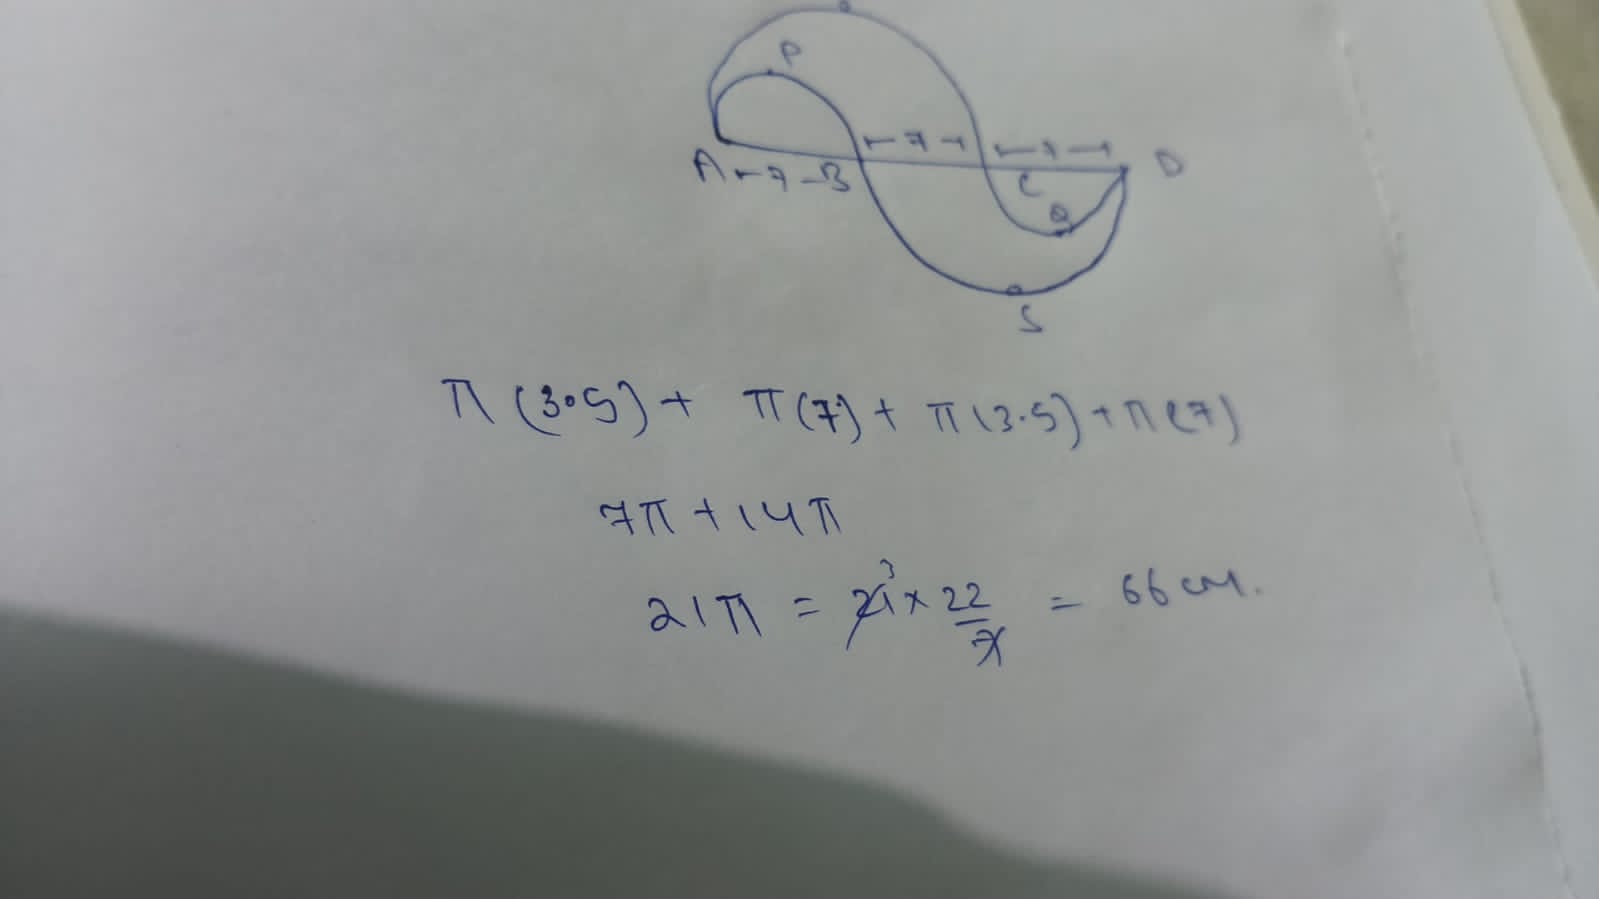 P
⊢ 7 ⊣ ⊢ 7 ⊣ D
A ⊢ 7 – B C
Q
S
π (3.5) + π (7) + π (3.5) + π (7)
7π + 14π
21π = 21 3 × 22/7 = 66 cm.